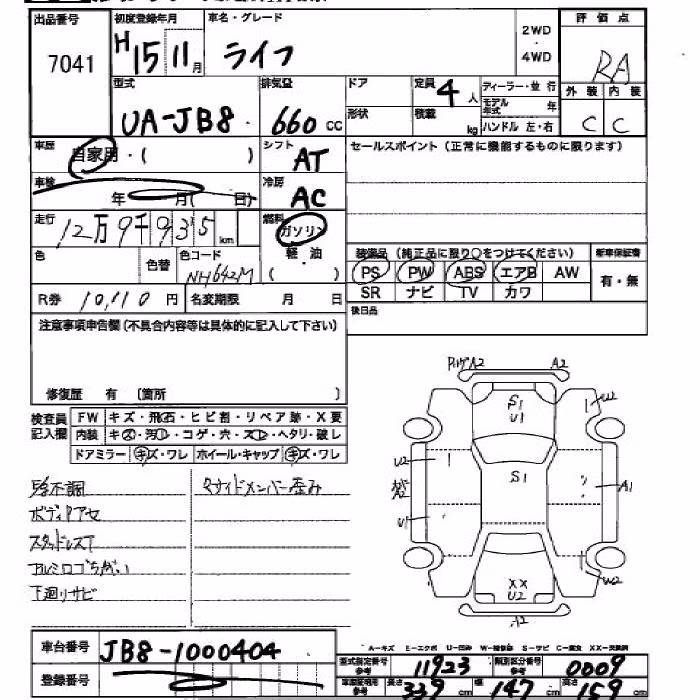 出品番号 初度登録年月 車名・グレード 2WD・4WD 評価点
7041 H15 11月 ライフ RA
型式 排気量 ドア 定員 4人 ディーラー・並行 外装 内装
形状 積載 kg モデル年式 年 C C
UA-JB8 660cc ハンドル 左・右
車歴 自家用・( ) シフト AT セールスポイント(正常に機能するものに限ります)
車検 年 月( 日) 冷房 AC
走行 12万9千935km 燃料 ガソリン
軽油
( )
色 色替 色コード NH642M
装備品(純正品に限り○をつけてください) 新車保証書
PS PW ABS エアB AW 有・無
SR ナビ TV カワ
R券 10,110円 名変期限 月 日
後日品
注意事項申告欄(不具合内容等は具体的に記入して下さい)
修復歴 有 〔箇所 〕
検査員記入欄 FW キズ・飛石・ヒビ割・リペア跡・X要
内装 キズ・汚レ・コゲ・穴・スレ・ヘタリ・破レ
ドアミラー キズ・ワレ ホイール・キャップ キズ・ワレ
ボディアセ
スタッドレスT
アルミロゴちがい
下廻りサビ
サイドメンバー歪み
A2 A2
S1
U1
U2
U2
S1
A2
A1
U1
XX
U2
W2
A2
A-キズ E-エクボ U-凹み W-補修跡 S-サビ C-腐食 XX-交換済
車台番号 JB8-1000404
登録番号
型式指定番号 参考 11923 類別区分番号 参考 0009
車庫証明用 参考 長さ 339cm 幅 147cm 高さ 159cm